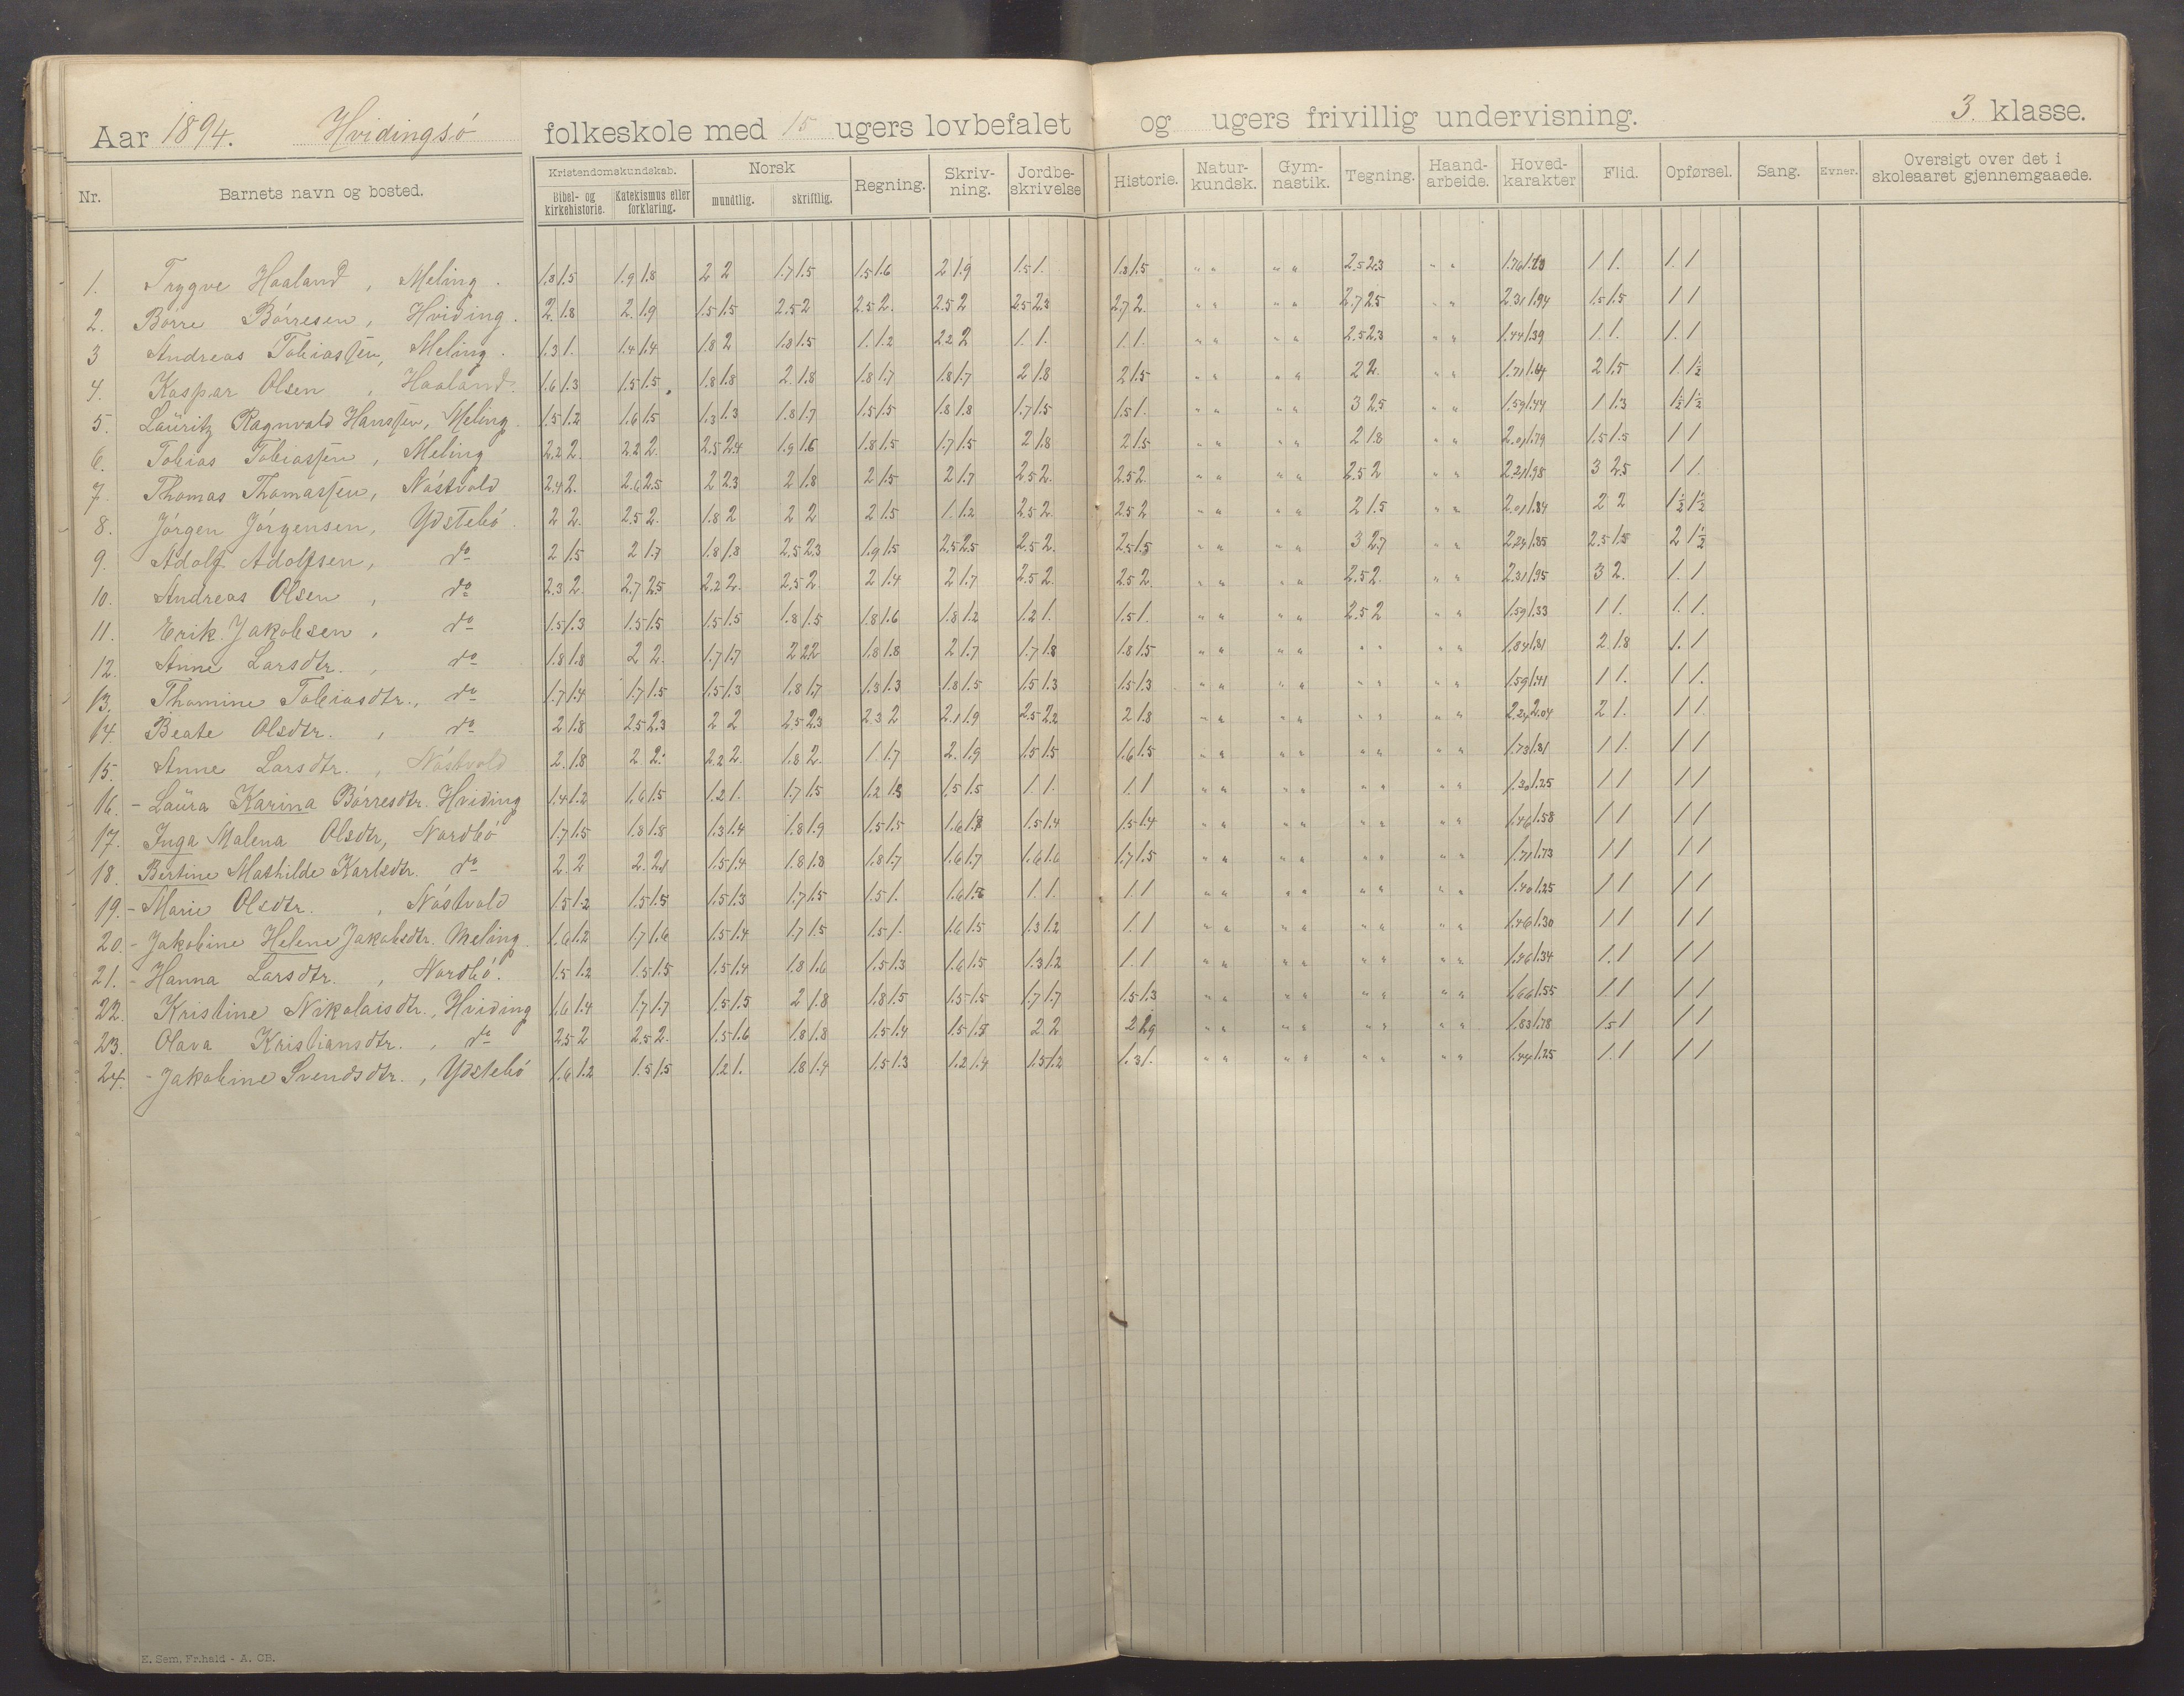 Aar 1894. Hvidingsö folkeskole med 15 ugers lovbefalet og ugers frivillig undervisning. 3. klasse.
Nr. Barnets navn og bosted. Kristendomskundskab. Bibel- og kirkehistorie. Katekismus eller forklaring. Norsk mundtlig. skriftlig. Regning. Skriv-ning. Jordbe-skrivelse Historie. Natur-kundsk. Gym-nastik. Tegning. Haand-arbeide. Hoved-karakter Flid. Opførsel. Sang. Evner. Oversigt over det i skoleaaret gjennemgaaede.
1. Trygve Haaland, Meling. 1.8 1.5 1.9 1.8 2 2 1.7 1.5 1.5 1.6 2 1.9 1.5 1. 1.8 1.5 " " " " 2.5 2.3 " " 1 1. 1. 1
2. Börre Börresen, Hviding. 2. 1.8 2. 1.9 1.5 1.5 2.5 2 2.5 2. 2.5 2 2.5 2.3 2.7 2. " " " " 2.7 2.5 " " 2.31 1.94 1.5 1.5 1 1
3 Andreas Tobiassen, Meling. 1.3 1. 1.4 1.4 1.8 2 1.8 1.5 1. 1.2 2.2 2 1. 1. 1. 1. " " " " 2.5 2.3 " " 1.44 1.39 1. 1. 1. 1
4. Kaspar Olsen, Haaland. 1.6 1.3 1.5 1.5 1.8 1.8 2. 1.8 1.8 1.7 1.8 1.7 2 1.8 2 1.5 " " " " 2 2. " " 1.71 1.64 2 1.5 1. 1½
5. Lauritz Ragnvald Hanssen, Meling. 1.5 1.2 1.6 1.5 1.3 1.3 1.8 1.7 1.5 1.5 1.8 1.8 1.7 1.5 1.5 1. " " " " 3 2.5 " " 1.59 1.44 1 1.3 1½ 1½
6. Tobias Tobiassen, Meling 2.2 2. 2.2 2. 2.5 2.4 1.9 1.6 1.8 1.5 1.7 1.5 2 1.8 2 1.5 " " " " 2 1.8 " " 2.01 1.79 1.5 1.5 1 1
7. Thomas Thomassen, Nástvold 2.4 2. 2.6 2.5 2 2.3 2 1.8 2 1.5 2 1.7 2.5 2. 2.5 2. " " " " 2.5 2 " " 2.21 1.98 3 2.5 1 1.
8. Jörgen Jörgensen, Ydstebö. 2 2. 2.5 2. 1.8 2 2 2 2 1.5 1. 1.2 2.5 2. 2.5 2 " " " " 2 1.5 " " 2.01 1.84 2 2 1½ 1½
9. Adolf Adolfsen, do 2 1.5 2 1.7 1.8 1.8 2.5 2.3 1.9 1.5 2.5 2.5 2.5 2. 2.5 1.5 " " " " 3 2.7 " " 2.24 1.85 2.5 1.5 2 1½
10. Andreas Olsen, do 2.3 2. 2.7 2.5 2.2 2. 2.5 2. 2 1.4 2 1.7 2.5 2. 2.5 2. " " " " 2.5 2. " " 2.31 1.95 3 2. 1. 1
11. Erik Jakobsen, do 1.5 1.3 1.5 1.5 1.5 1.5 1.8 1.5 1.8 1.6 1.8 1.2 1.2 1. 1.5 1. " " " " 2.5 2 " " 1.59 1.33 1 1. 1. 1.
12. Anne Larsdtr., do 1.8 1.8 2 2. 1.7 1.7 2 2.2 1.8 1.8 2 1.7 1.7 1.8 1.8 1.5 " " " " " " " " 1.84 1.81 2 1.8 1. 1
13. Thomine Tobiasdtr., do 1.7 1.4 1.7 1.5 1.5 1.3 1.8 1.7 1.3 1.3 1.8 1.5 1.5 1.3 1.5 1.3 " " " " " " " " 1.59 1.41 1 1. 1 1.
14. Beate Olsdtr., do 2 1.8 2.5 2.3 2 2 2.5 2.3 2.3 2 2.1 1.9 2.5 2.2 2 1.8 " " " " " " " " 2.24 2.04 2 1. 1 1.
15. Anne Larsdtr., Nástvold 2. 1.8 2 2. 2.2 2. 1.8 2. 1. 1.7 2. 1.9 1.5 1.5 1.6 1.5 " " " " " " " " 1.73 1.81 1 1. 1 1
16. - Laura Karina Börresdtr. Hviding 1.4 1.2 1.6 1.5 1.2 1. 1.7 1.5 1.2 1.3 1.5 1.5 1. 1. 1. 1 " " " " " " " " 1.30 1.25 1 1 1 1
17. Inga Malena Olsdtr, Nordbö 1.7 1.5 1.8 1.8 1.3 1.4 1.8 1.9 1.5 1.5 1.6 1.8 1.5 1.4 1.5 1.4 " " " " " " " " 1.46 1.58 1 1 1 1
18. Bertine Mathilde Karlsdtr. do 2. 2 2. 2.1 1.5 1.4 1.8 1.8 1.8 1.7 1.6 1.7 1.6 1.6 1.7 1.5 " " " " " " " " 1.71 1.73 1 1 1 1
19. - Marie Olsdtr., Nástvold 1.5 1.2 1.5 1.5 1.5 1.3 1.7 1.5 1.5 1. 1.6 1.5 1. 1. 1. 1 " " " " " " " " 1.40 1.25 1 1 1 1
20. - Jakobine Helene Jakobsdtr. Meling. 1.6 1.2 1.7 1.6 1.5 1.4 1.7 1.5 1.5 1. 1.6 1.5 1.3 1.2 1. 1 " " " " " " " " 1.46 1.30 1 1 1 1
21. - Hanna Larsdtr., Nordbö. 1.5 1.2 1.5 1.5 1.5 1.4 1.8 1.6 1.5 1.3 1.6 1.5 1.3 1.2 1. 1 " " " " " " " " 1.46 1.34 1. 1 1 1
22. Kristine Nikolaisdtr., Hviding 1.6 1.4 1.7 1.7 1.5 1.5 2 1.8 1.8 1.5 1.5 1.5 1.7 1.7 1.5 1.3 " " " " " " " " 1.66 1.55 1 1 1 1
23. Olava Kristiansdtr., do 2.5 2 2.5 2. 1.5 1.6 1.8 1.8 1.5 1.4 1.5 1.5 2 2 2 1.9 " " " " " " " " 1.83 1.78 1.5 1 1 1
24. - Jakobine Svendsdtr., Ydstebö 1.6 1.2 1.5 1.5 1.2 1. 1.8 1.4 1.5 1.3 1.2 1.4 1.5 1.2 1.3 1. " " " " " " " " 1.44 1.25 1. 1 1 1
E. Sem, Fr.hald - A. CB.